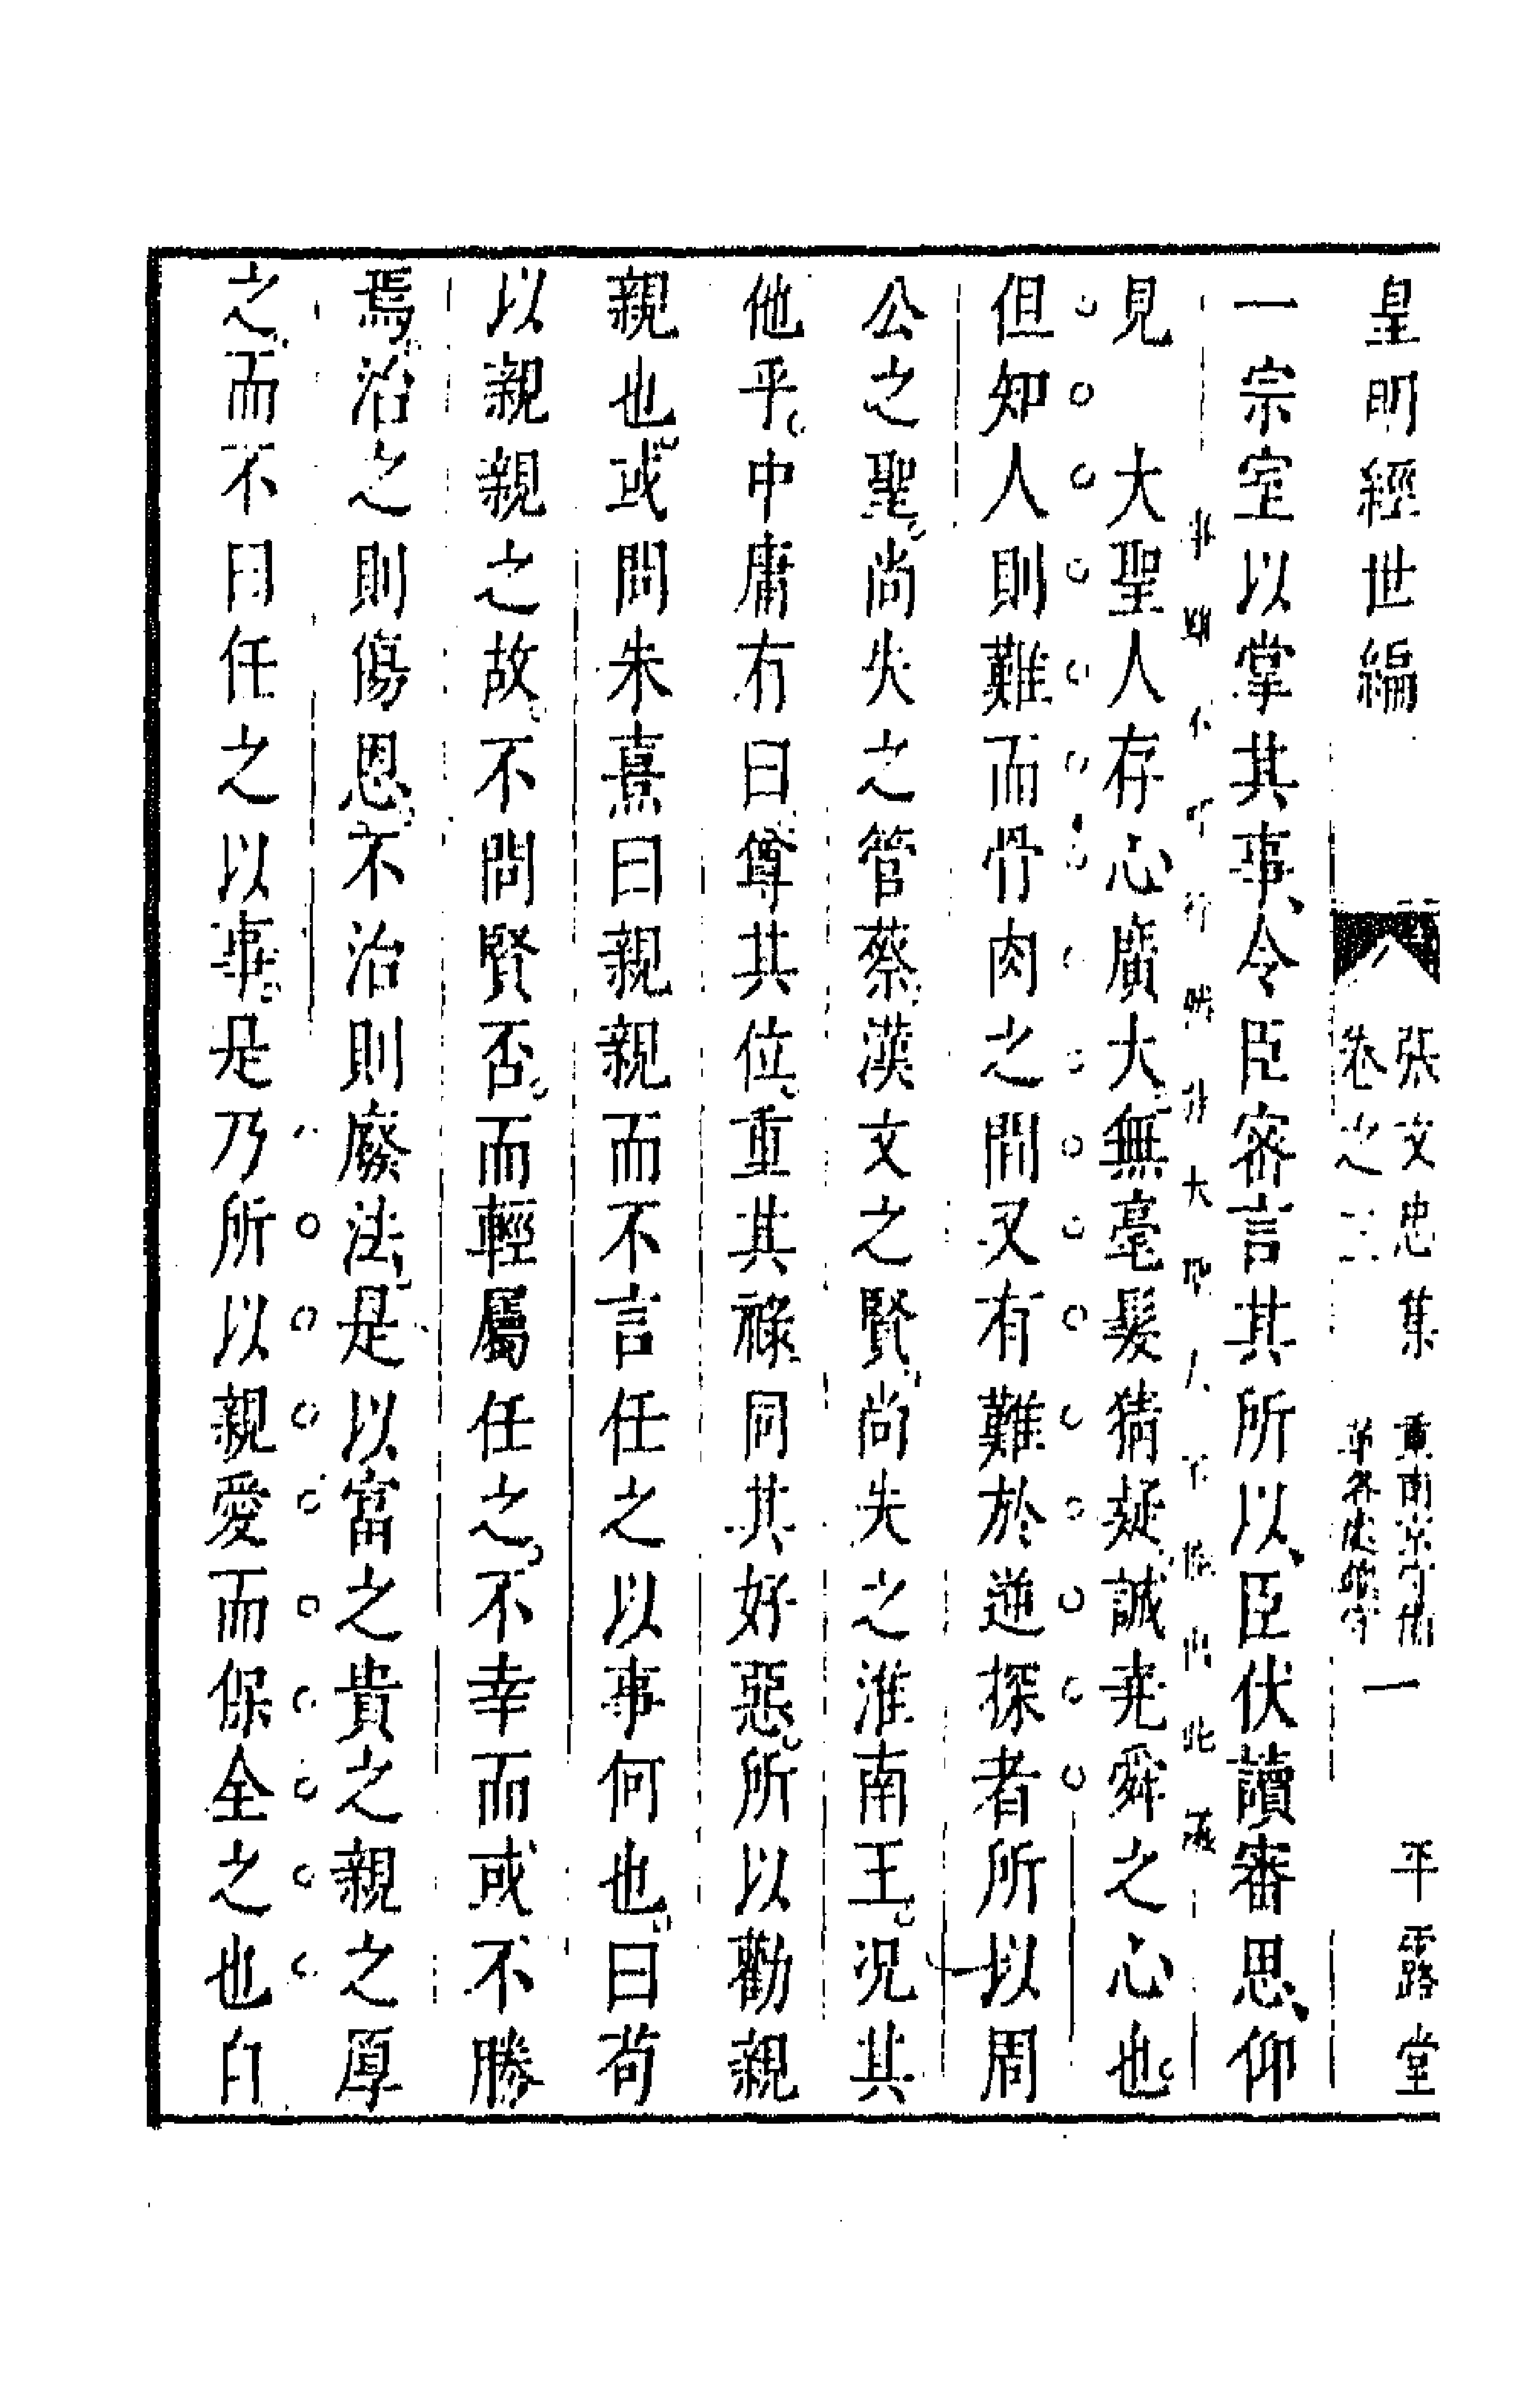 皇明經世編
張文忠集
卷之三
一
平露堂
一宗室以掌其事令臣密言其所以臣伏讀審思仰
事雖不可行然非大聖人不能出此議
見　大聖人存心廣大無毫髮猜疑誠堯舜之心也
但知人則難而骨肉之間又有難於逆探者所以周
公之聖尚失之管蔡漢文之賢尚失之淮南王況其
他乎中庸有曰尊其位重其祿同其好惡所以勸親
親也或問朱熹曰親親而不言任之以事何也曰苟
以親親之故不問賢否而輕屬任之不幸而或不勝
焉治之則傷恩不治則廢法是以富之貴之親之厚
之而不曰任之以事是乃所以親愛而保全之也自